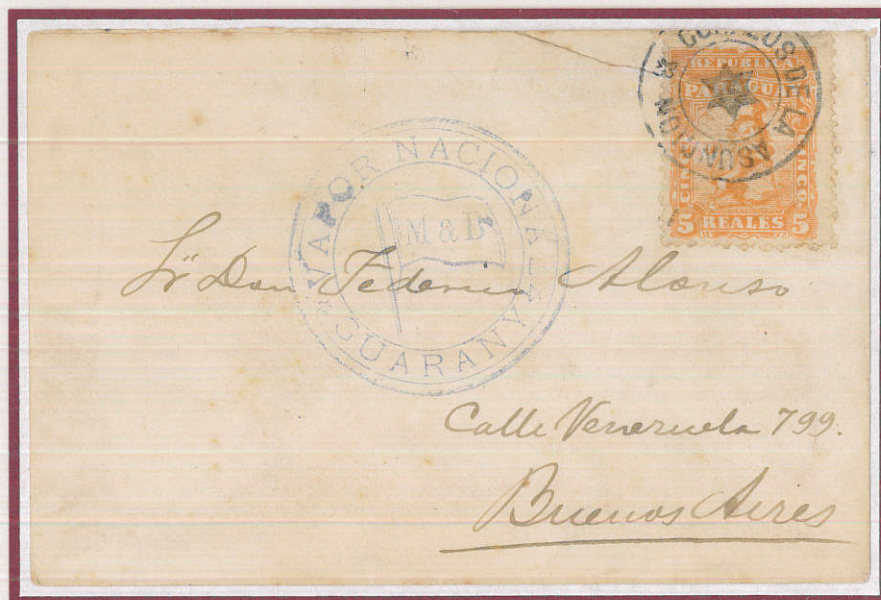 CORREOS DE LA ASUNCION
REPUBLICA
PARAGUAY
CINCO
5 REALES 5
VAPOR NACIONAL
M & B
GUARANY
Sr Don Federico Alonso
Calle Venezuela 799.
Buenos Aires